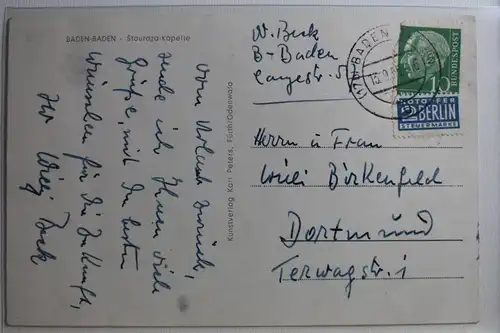 BADEN-BADEN - Stourdza-Kapelle
Vom Urlaub zurück,
sende ich Ihnen viele
Grüße, mit den besten
Wünschen für die Zukunft,
Ihr Willy Beck
Kunstverlag Karl Peters, Fürth/Odenwald
W. Beck
B-Baden
Langestr. 5
BADEN
DEUTSCHE BUNDESPOST
10
NOTOPFER
2 BERLIN
STEUERMARKE
Herrn u Frau
Willi Birkenfeld
Dortmund
Terwagstr. 1